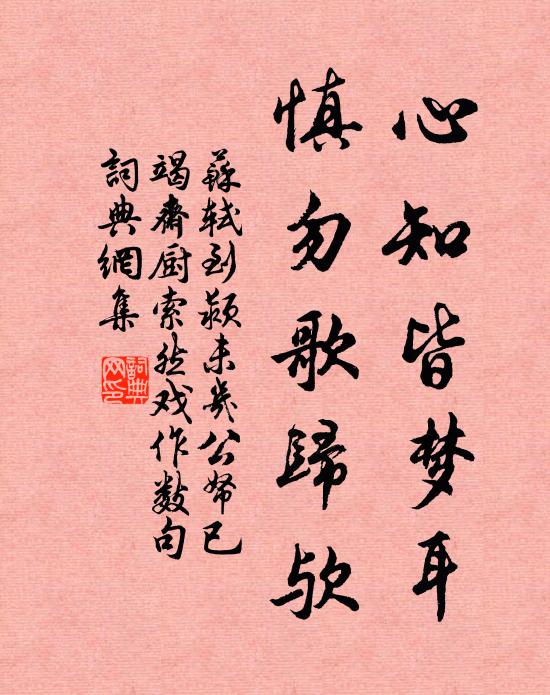 心知皆梦耳
慎勿歌歸欤
蘇轼到颍未幾公帑已
竭齋厨索然戏作数句
詞典網集
詞典网印